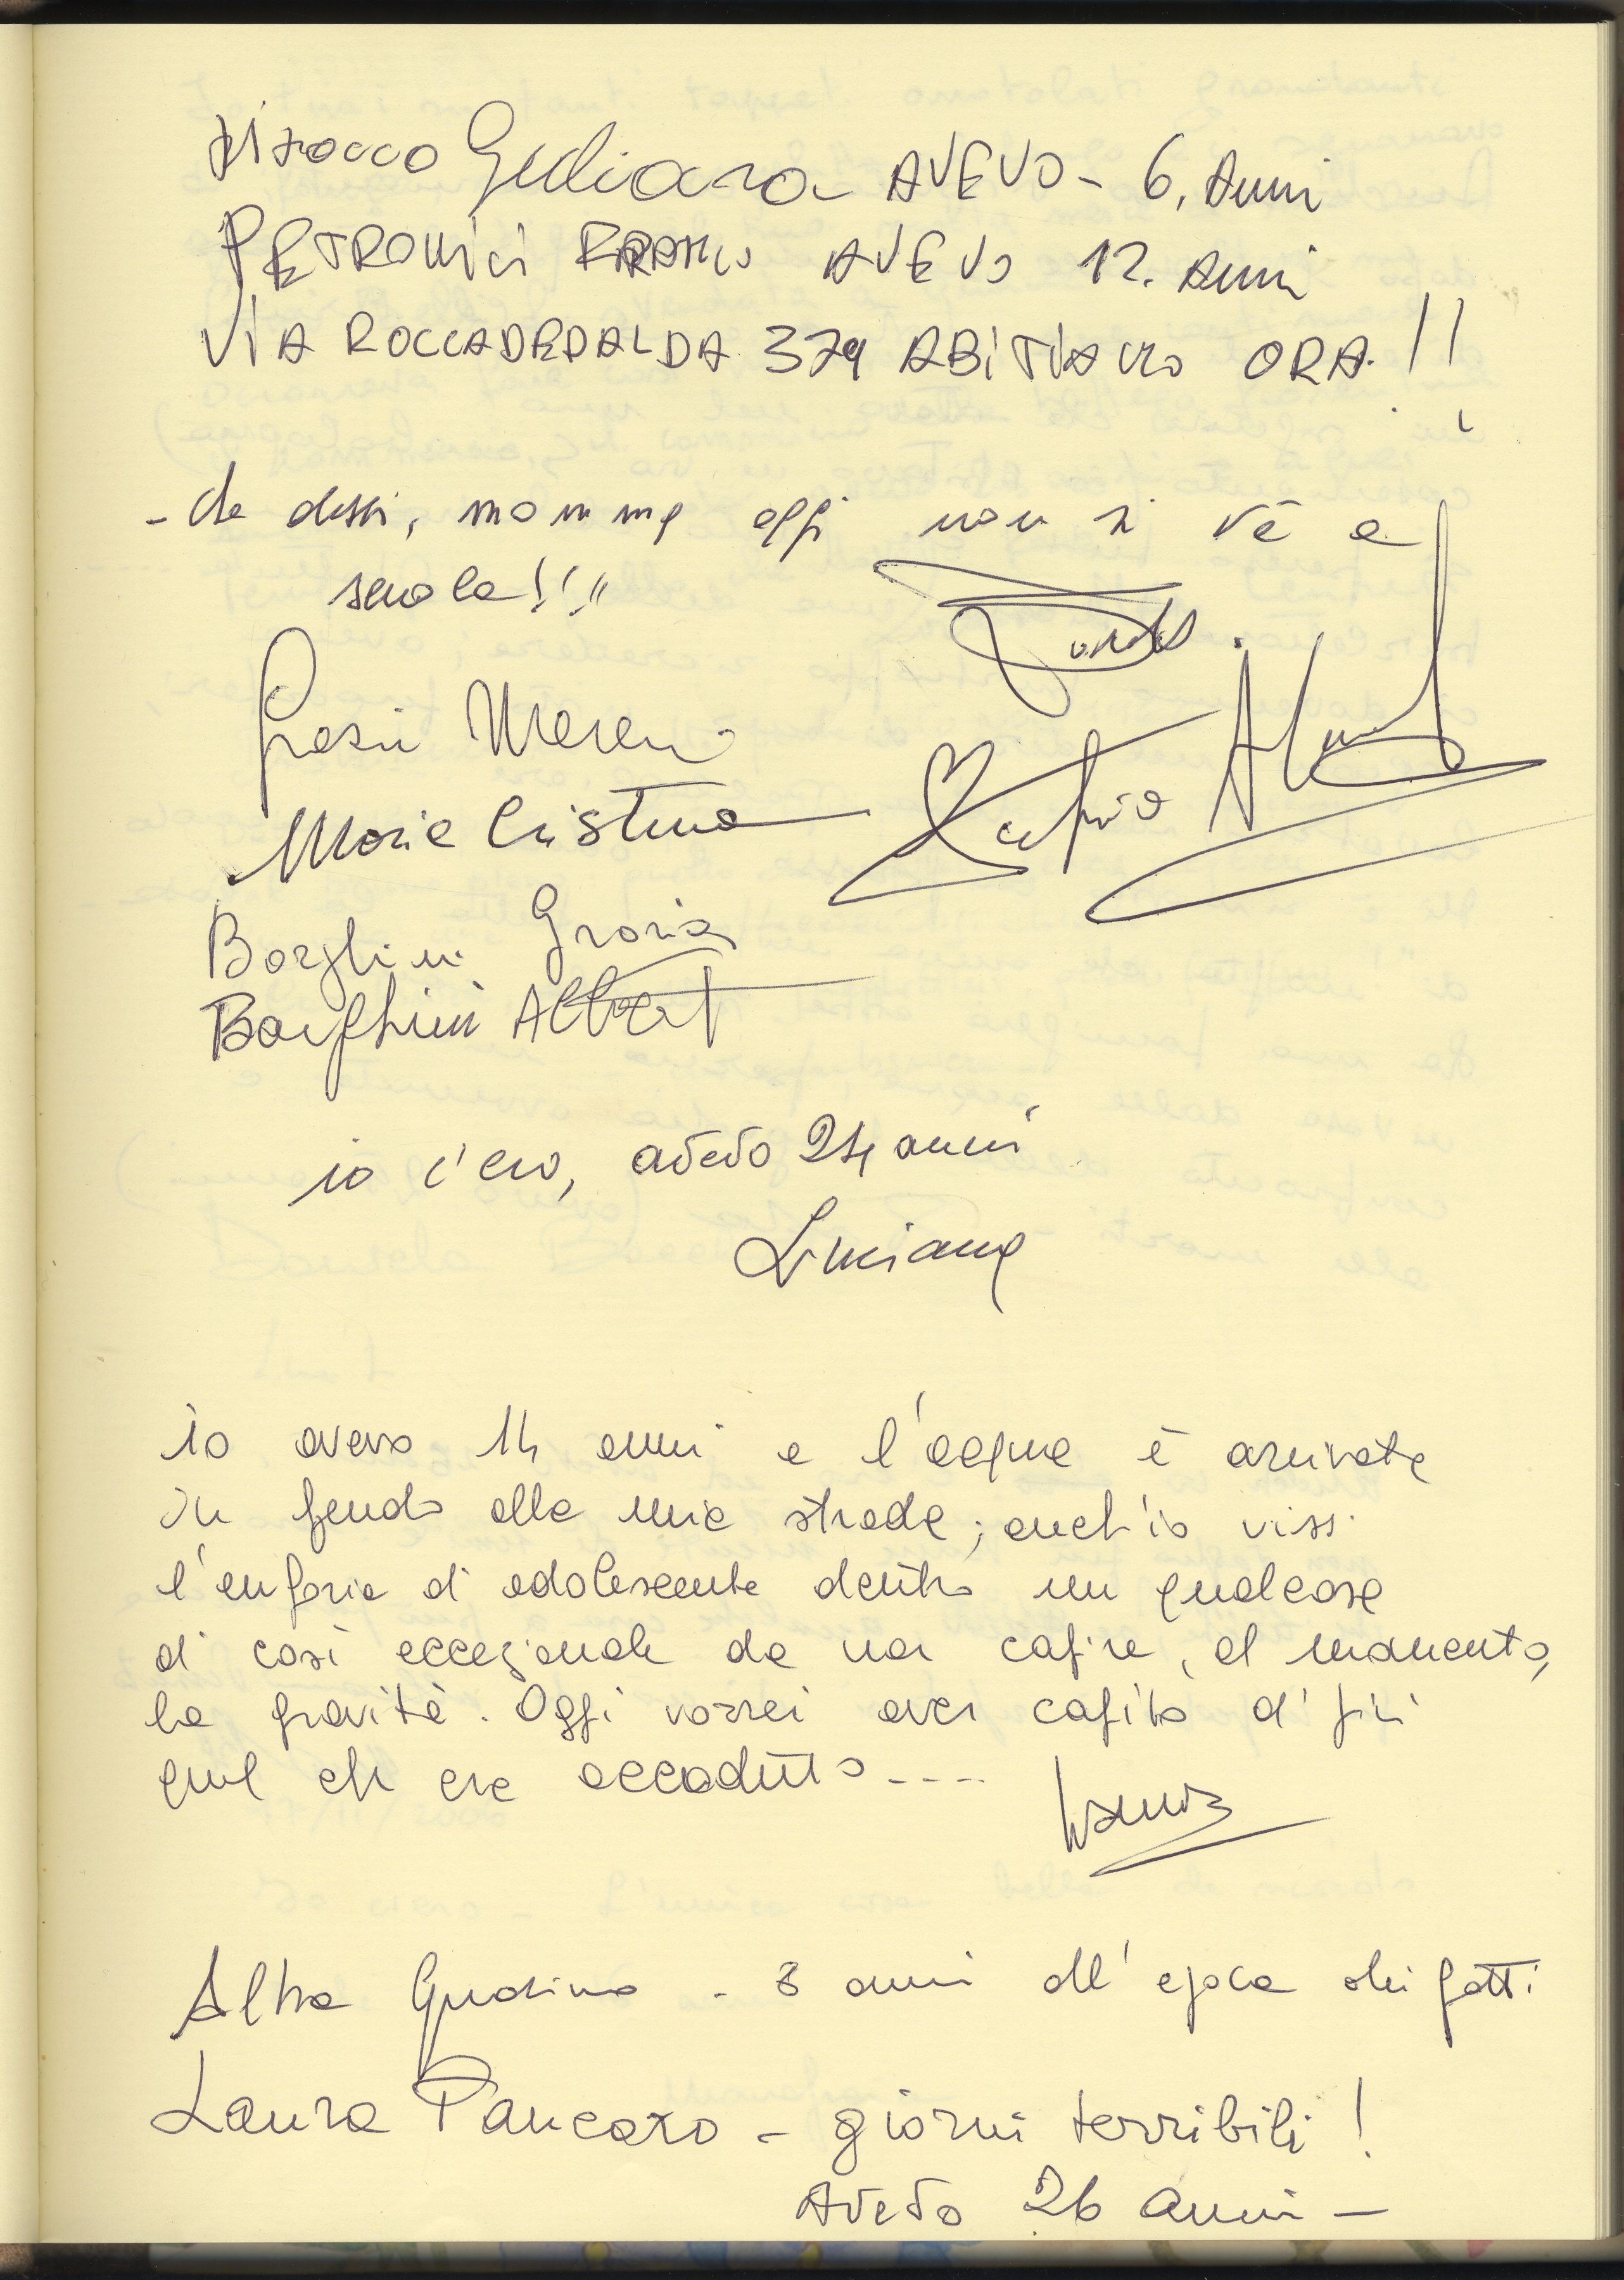 Sirocco Giuliana AVEVO - 6. Anni
PETRONICI FRANCO AVEVO 12. Anni
VIA ROCCADEDALDA 379 ABITIAMO ORA. !!
- che dissi, mamma oggi non si và a
scuola!!!!
Grazia
Maria Cristina
Borghini Grazia
Borghini Albert
io c'ero, avevo 24 anni
Luciana
io avevo 14 anni e l'acqua è arrivata
in fondo alla mia strada; anch'io vissi
l'euforia di adolescente dentro un qualcosa
di così eccezionale da non capire, al momento,
la gravità. Oggi vorrei aver capito di più
quel che era accaduto....
Alba - 8 anni all'epoca dei fatti
Laura Pancaro - giorni terribili!
Avevo 26 anni -